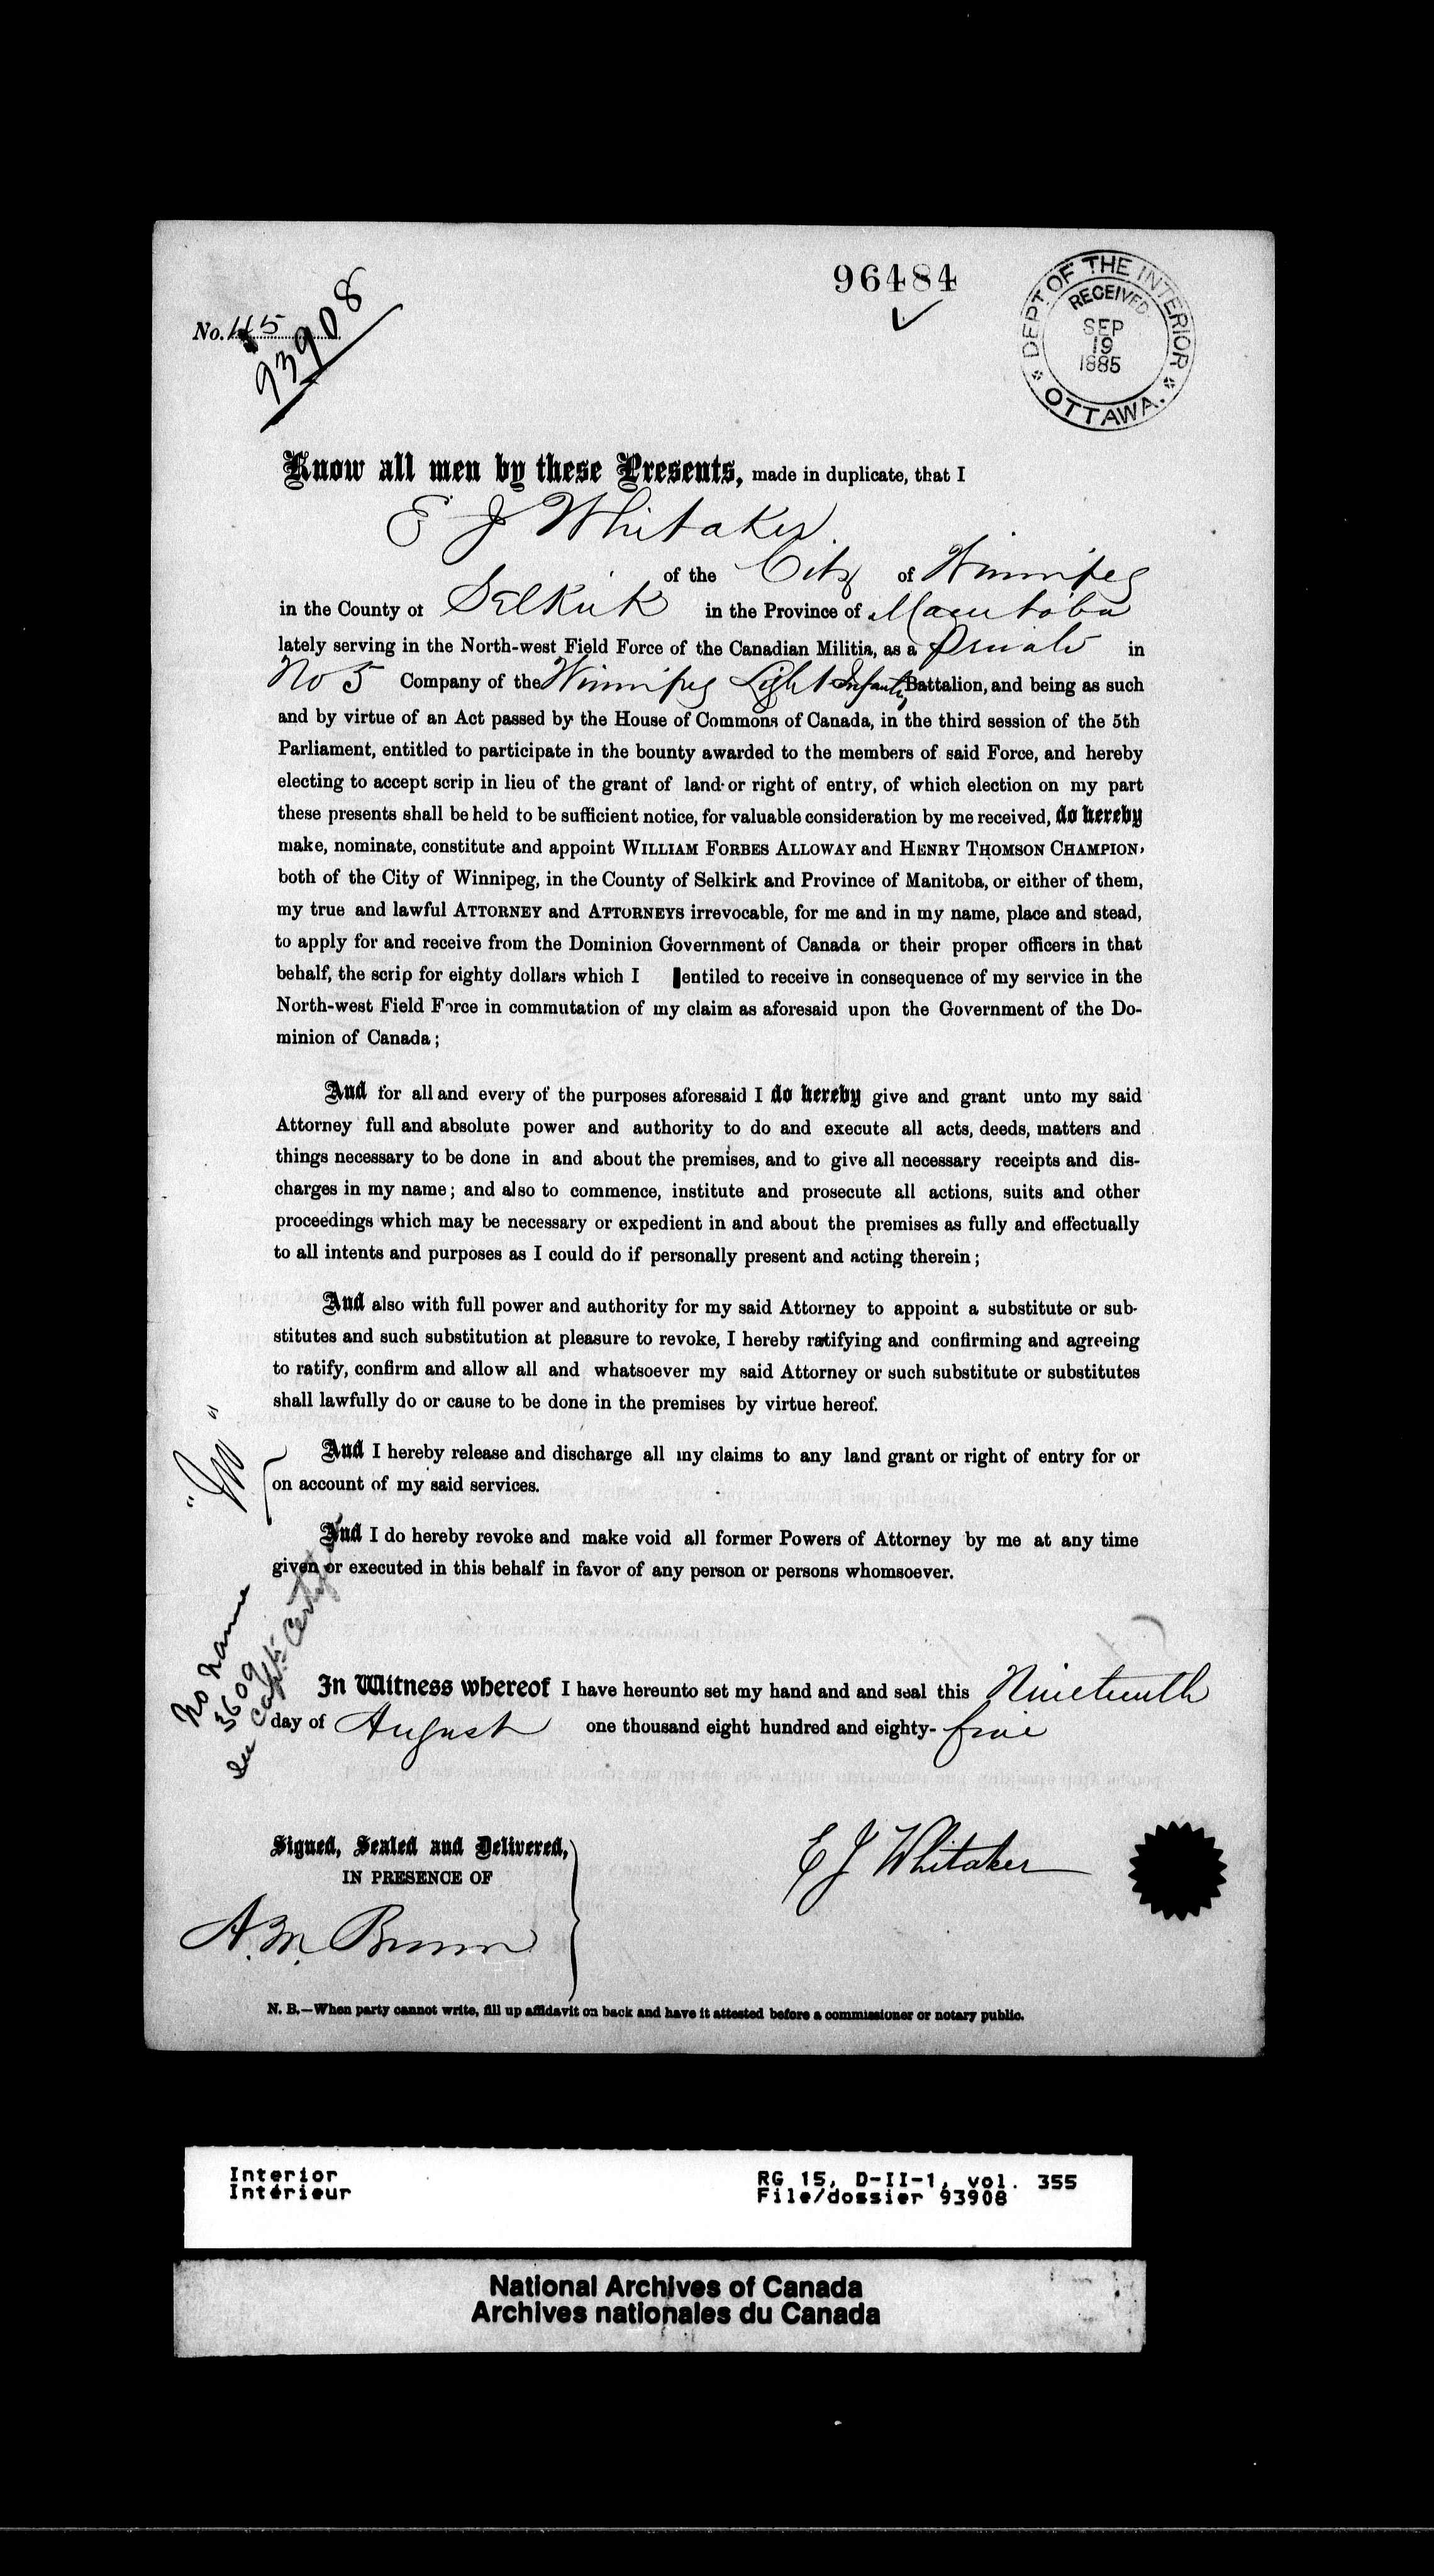 96484
DEPT OF THE INTERIOR
RECEIVED
SEP
19
1885
OTTAWA.
No. 115
93908
Know all men by these Presents, made in duplicate, that I
E J Whitaker
of the City of Winnipeg
in the County of Selkirk in the Province of Manitoba
lately serving in the North-west Field Force of the Canadian Militia, as a Private in
No 5 Company of the Winnipeg Light Infantry Battalion, and being as such
and by virtue of an Act passed by the House of Commons of Canada, in the third session of the 5th
Parliament, entitled to participate in the bounty awarded to the members of said Force, and hereby
electing to accept scrip in lieu of the grant of land or right of entry, of which election on my part
these presents shall be held to be sufficient notice, for valuable consideration by me received, do hereby
make, nominate, constitute and appoint WILLIAM FORBES ALLOWAY and HENRY THOMSON CHAMPION,
both of the City of Winnipeg, in the County of Selkirk and Province of Manitoba, or either of them,
my true and lawful ATTORNEY and ATTORNEYS irrevocable, for me and in my name, place and stead,
to apply for and receive from the Dominion Government of Canada or their proper officers in that
behalf, the scrip for eighty dollars which I entiled to receive in consequence of my service in the
North-west Field Force in commutation of my claim as aforesaid upon the Government of the Do-
minion of Canada;
And for all and every of the purposes aforesaid I do hereby give and grant unto my said
Attorney full and absolute power and authority to do and execute all acts, deeds, matters and
things necessary to be done in and about the premises, and to give all necessary receipts and dis-
charges in my name; and also to commence, institute and prosecute all actions, suits and other
proceedings which may be necessary or expedient in and about the premises as fully and effectually
to all intents and purposes as I could do if personally present and acting therein;
And also with full power and authority for my said Attorney to appoint a substitute or sub-
stitutes and such substitution at pleasure to revoke, I hereby ratifying and confirming and agreeing
to ratify, confirm and allow all and whatsoever my said Attorney or such substitute or substitutes
shall lawfully do or cause to be done in the premises by virtue hereof.
And I hereby release and discharge all my claims to any land grant or right of entry for or
on account of my said services.
And I do hereby revoke and make void all former Powers of Attorney by me at any time
given or executed in this behalf in favor of any person or persons whomsoever.
No name
3609
See Capt's Certif
In Witness whereof I have hereunto set my hand and and seal this Nineteenth
day of August one thousand eight hundred and eighty-five
Signed, Sealed and Delivered,
IN PRESENCE OF
E J Whitaker
A. M. Brown
N. B.—When party cannot write, fill up affidavit on back and have it attested before a commissioner or notary public.
Interior RG 15, D-II-1, vol. 355
Intérieur File/dossier 93908
National Archives of Canada
Archives nationales du Canada